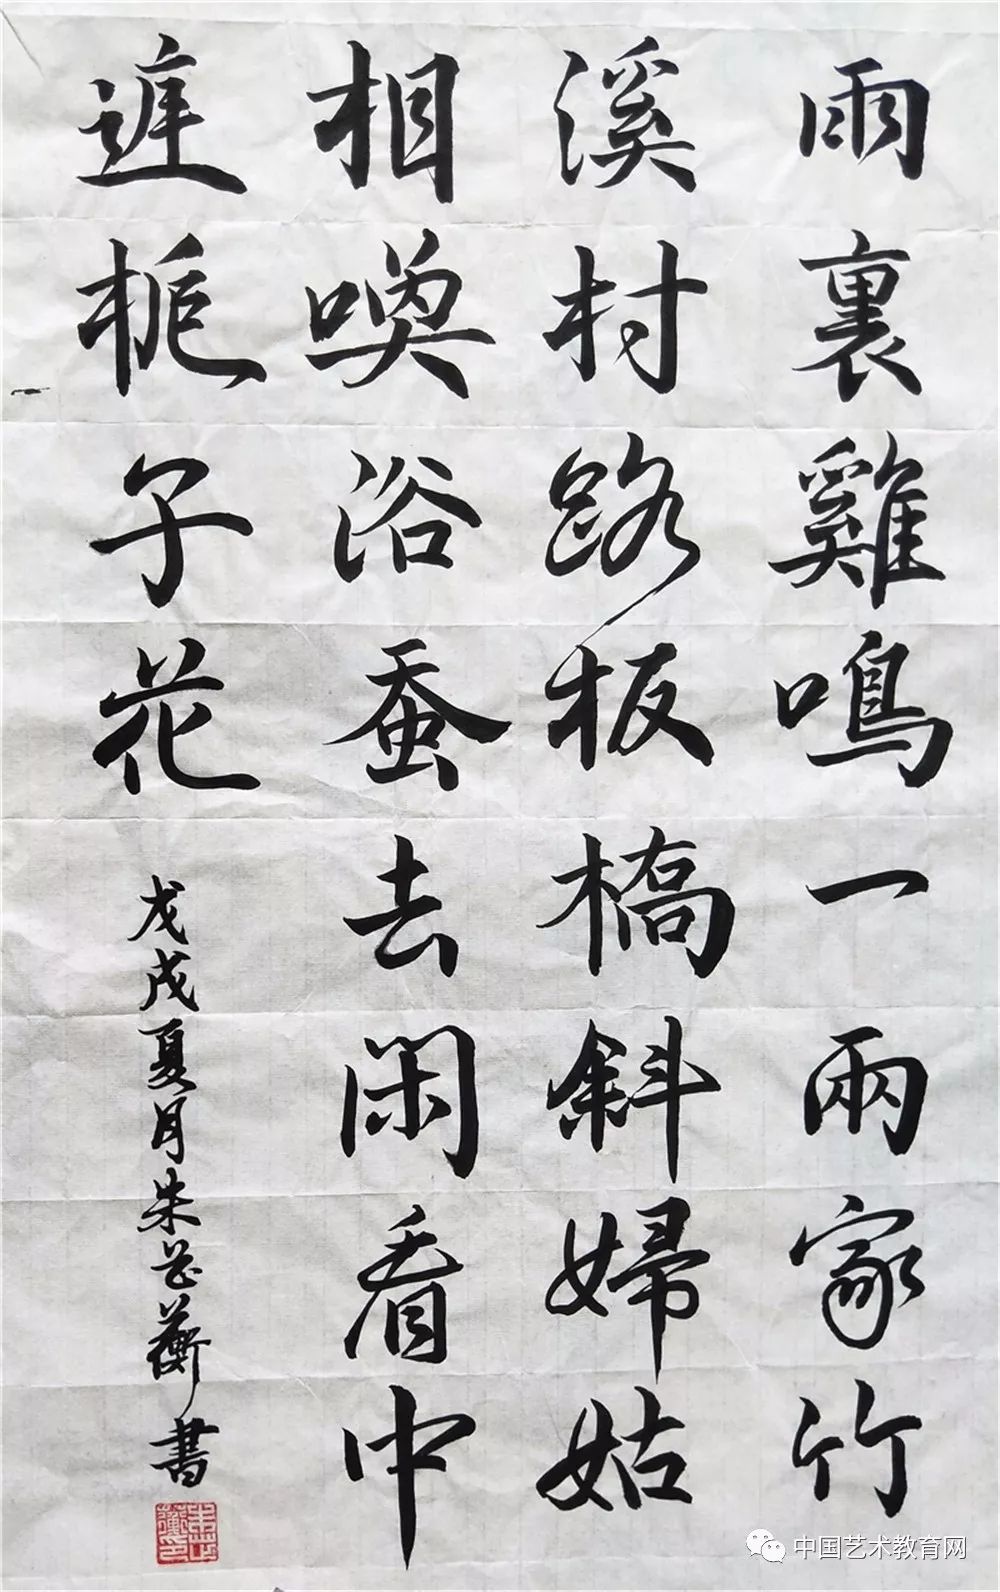 雨裏雞鳴一兩家竹
溪村路板橋斜婦姑
相喚浴蚕去閑看中
庭栀子花
戊戌夏月朱芷蘅書
中国艺术教育网